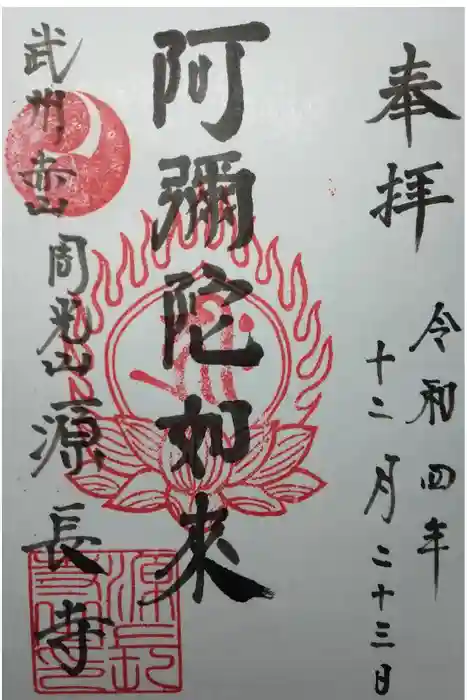 奉拝
令和四年
十二月二十三日
阿彌陀如来
武州赤山周光山源長寺